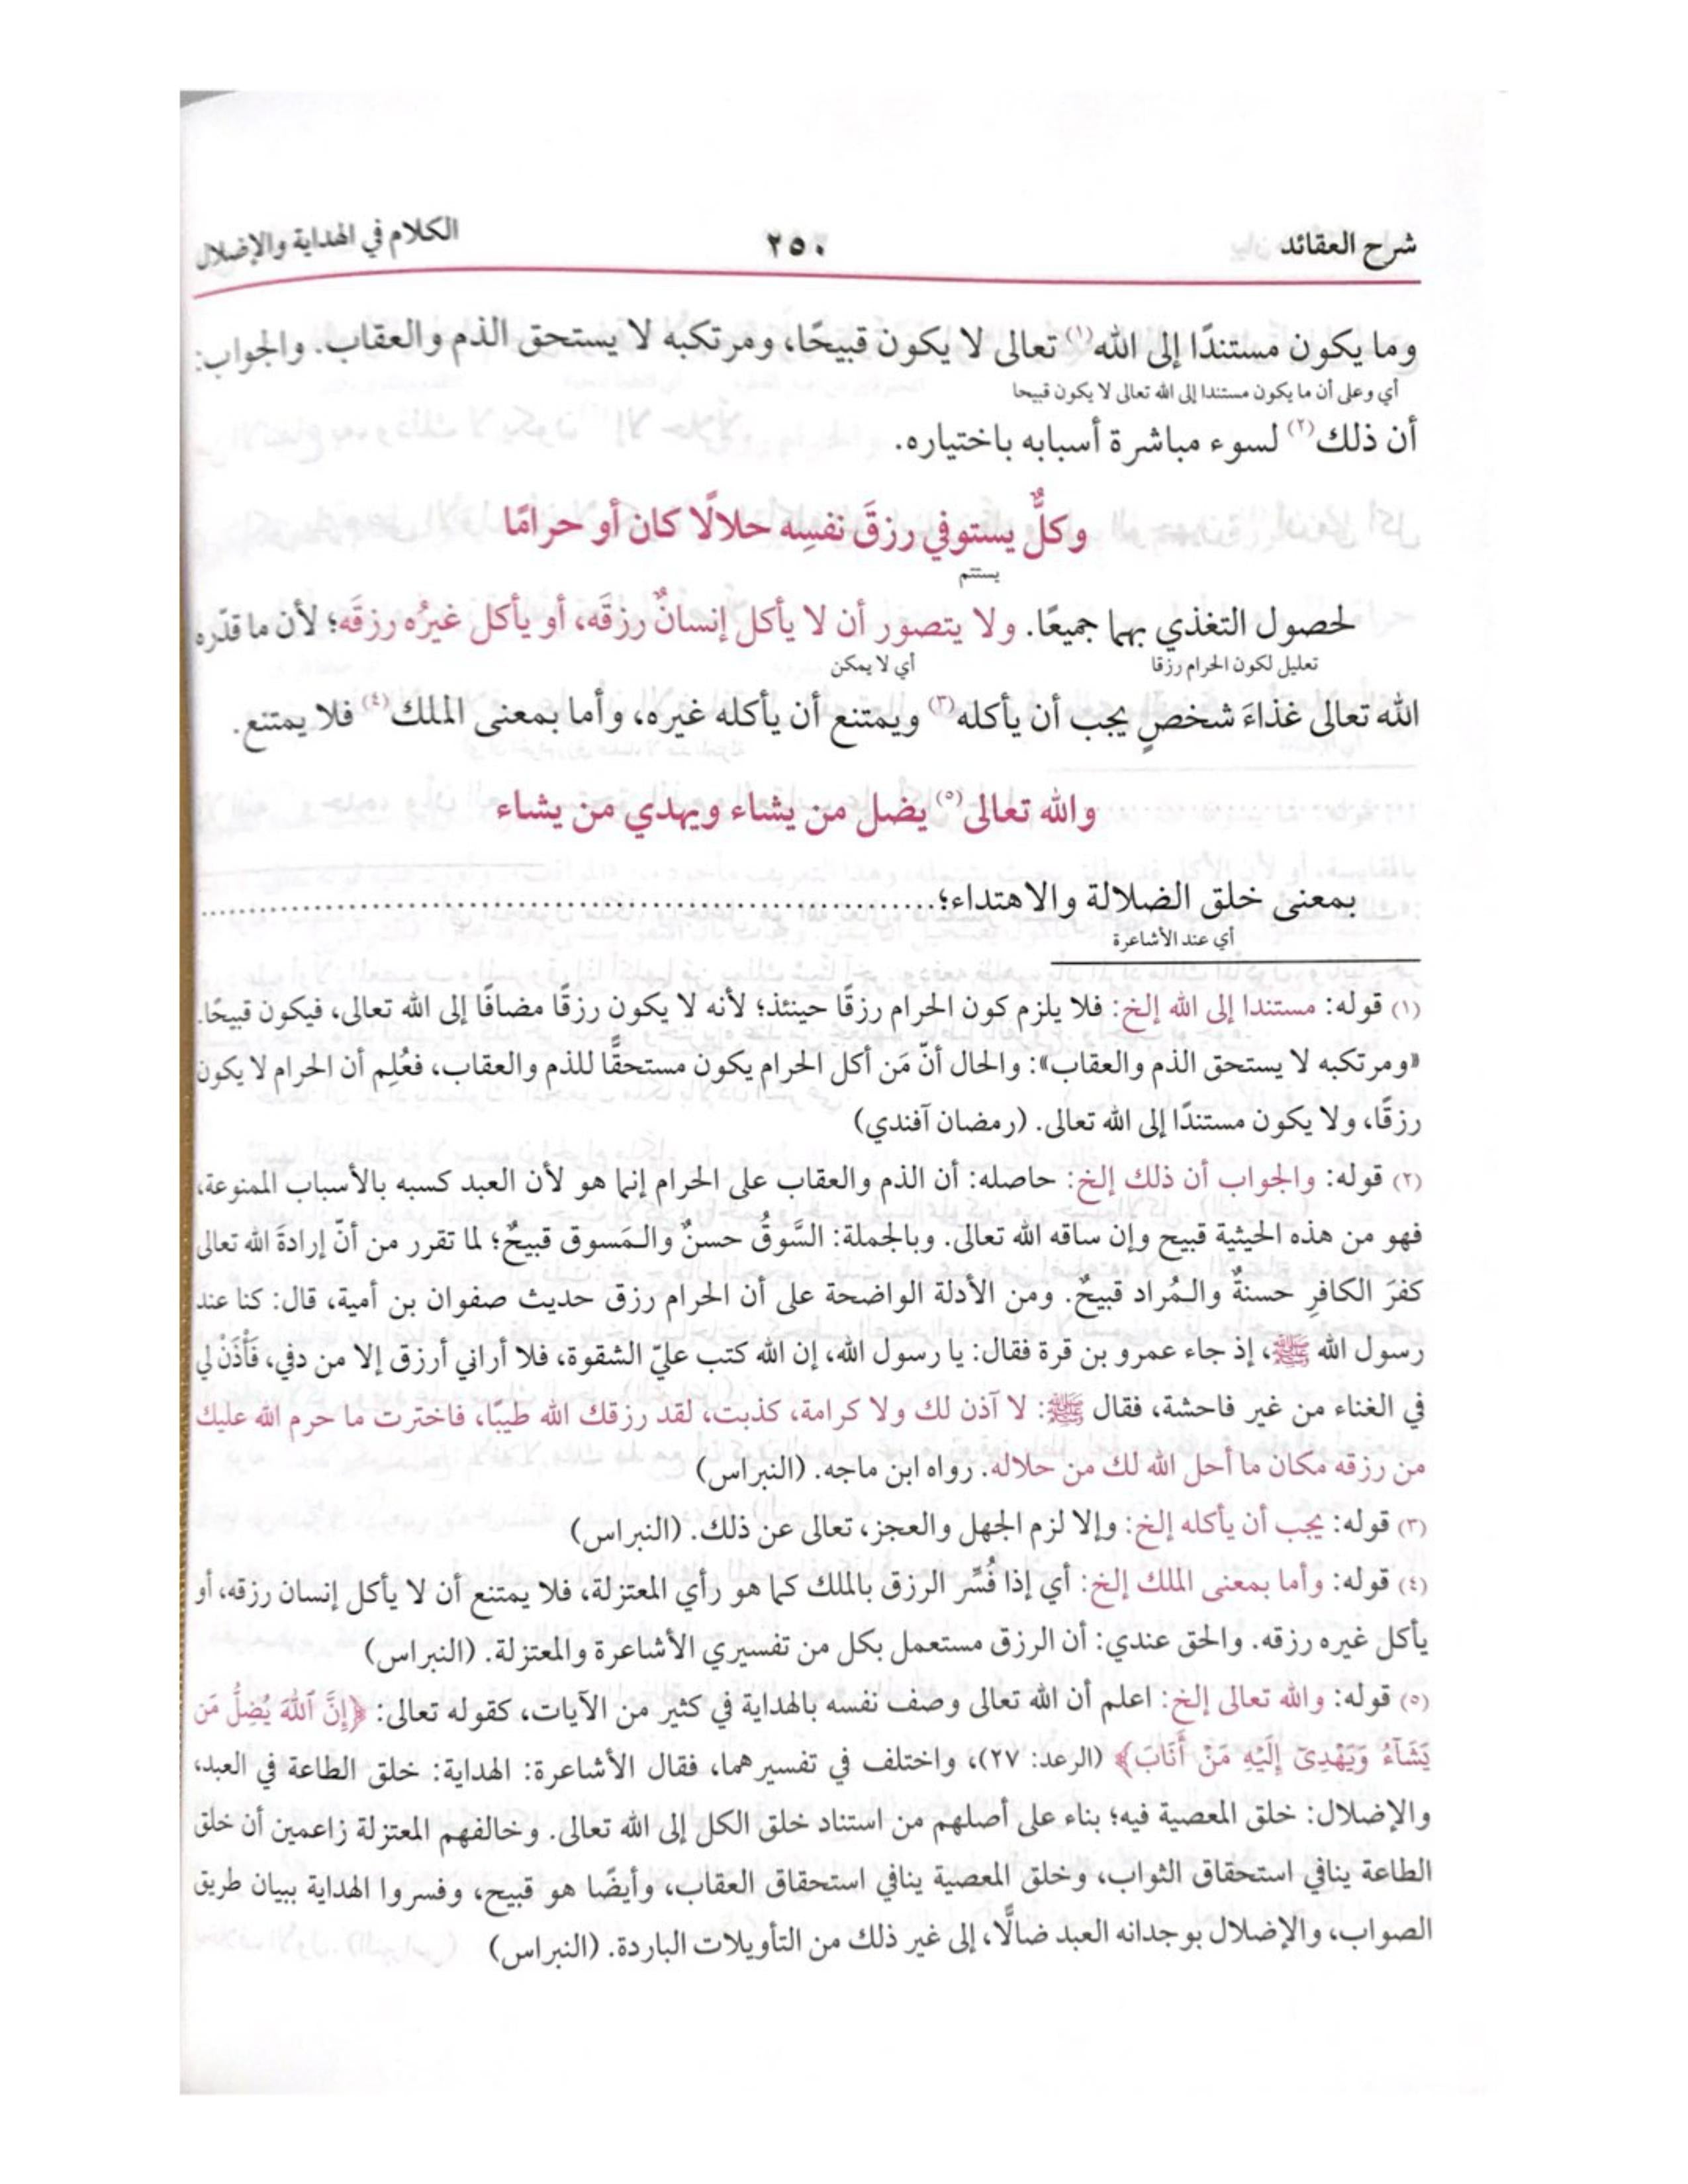 شرح العقائد ٢٥٠ الكلام في الهداية والإضلال
وما يكون مستندًا إلى الله(١) تعالى لا يكون قبيحًا، ومرتكبه لا يستحق الذم والعقاب. والجواب:
أي وعلى أن ما يكون مستندا إلى الله تعالى لا يكون قبيحا
أن ذلك(٢) لسوء مباشرة أسبابه باختياره.
وكلٌّ يستوفي رزقَ نفسِه حلالًا كان أو حرامًا
يستتم
لحصول التغذي بهما جميعًا. ولا يتصور أن لا يأكل إنسانٌ رزقَه، أو يأكل غيرُه رزقَه؛ لأن ما قدّره
تعليل لكون الحرام رزقا أي لا يمكن
الله تعالى غذاءَ شخصٍ يجب أن يأكله(٣) ويمتنع أن يأكله غيره، وأما بمعنى الملك(٤) فلا يمتنع.
والله تعالى(٥) يضل من يشاء ويهدي من يشاء
بمعنى خلق الضلالة والاهتداء؛..........................................................
أي عند الأشاعرة
(١) قوله: مستندا إلى الله إلخ: فلا يلزم كون الحرام رزقًا حينئذ؛ لأنه لا يكون رزقًا مضافًا إلى الله تعالى، فيكون قبيحًا.
«ومرتكبه لا يستحق الذم والعقاب»: والحال أنّ مَن أكل الحرام يكون مستحقًّا للذم والعقاب، فعُلِم أن الحرام لا يكون
رزقًا، ولا يكون مستندًا إلى الله تعالى. (رمضان آفندي)
(٢) قوله: والجواب أن ذلك إلخ: حاصله: أن الذم والعقاب على الحرام إنما هو لأن العبد كسبه بالأسباب الممنوعة،
فهو من هذه الحيثية قبيح وإن ساقه الله تعالى. وبالجملة: السَّوقُ حسنٌ والـمَسوق قبيحٌ؛ لما تقرر من أنّ إرادةَ الله تعالى
كفرَ الكافرِ حسنةٌ والـمُراد قبيحٌ. ومن الأدلة الواضحة على أن الحرام رزق حديث صفوان بن أمية، قال: كنا عند
رسول الله ﷺ، إذ جاء عمرو بن قرة فقال: يا رسول الله، إن الله كتب عليّ الشقوة، فلا أراني أرزق إلا من دفي، فَأْذَنْ لي
في الغناء من غير فاحشة، فقال ﷺ: لا آذن لك ولا كرامة، كذبت، لقد رزقك الله طيبًا، فاخترت ما حرم الله عليك
من رزقه مكان ما أحل الله لك من حلاله. رواه ابن ماجه. (النبراس)
(٣) قوله: يجب أن يأكله إلخ: وإلا لزم الجهل والعجز، تعالى عن ذلك. (النبراس)
(٤) قوله: وأما بمعنى الملك إلخ: أي إذا فُسِّر الرزق بالملك كما هو رأي المعتزلة، فلا يمتنع أن لا يأكل إنسان رزقه، أو
يأكل غيره رزقه. والحق عندي: أن الرزق مستعمل بكل من تفسيري الأشاعرة والمعتزلة. (النبراس)
(٥) قوله: والله تعالى إلخ: اعلم أن الله تعالى وصف نفسه بالهداية في كثير من الآيات، كقوله تعالى: ﴿إِنَّ ٱللَّهَ يُضِلُّ مَن
يَشَآءُ وَيَهْدِىٓ إِلَيْهِ مَنْ أَنَابَ﴾ (الرعد: ٢٧)، واختلف في تفسيرهما، فقال الأشاعرة: الهداية: خلق الطاعة في العبد،
والإضلال: خلق المعصية فيه؛ بناء على أصلهم من استناد خلق الكل إلى الله تعالى. وخالفهم المعتزلة زاعمين أن خلق
الطاعة ينافي استحقاق الثواب، وخلق المعصية ينافي استحقاق العقاب، وأيضًا هو قبيح، وفسروا الهداية ببيان طريق
الصواب، والإضلال بوجدانه العبد ضالًّا، إلى غير ذلك من التأويلات الباردة. (النبراس)